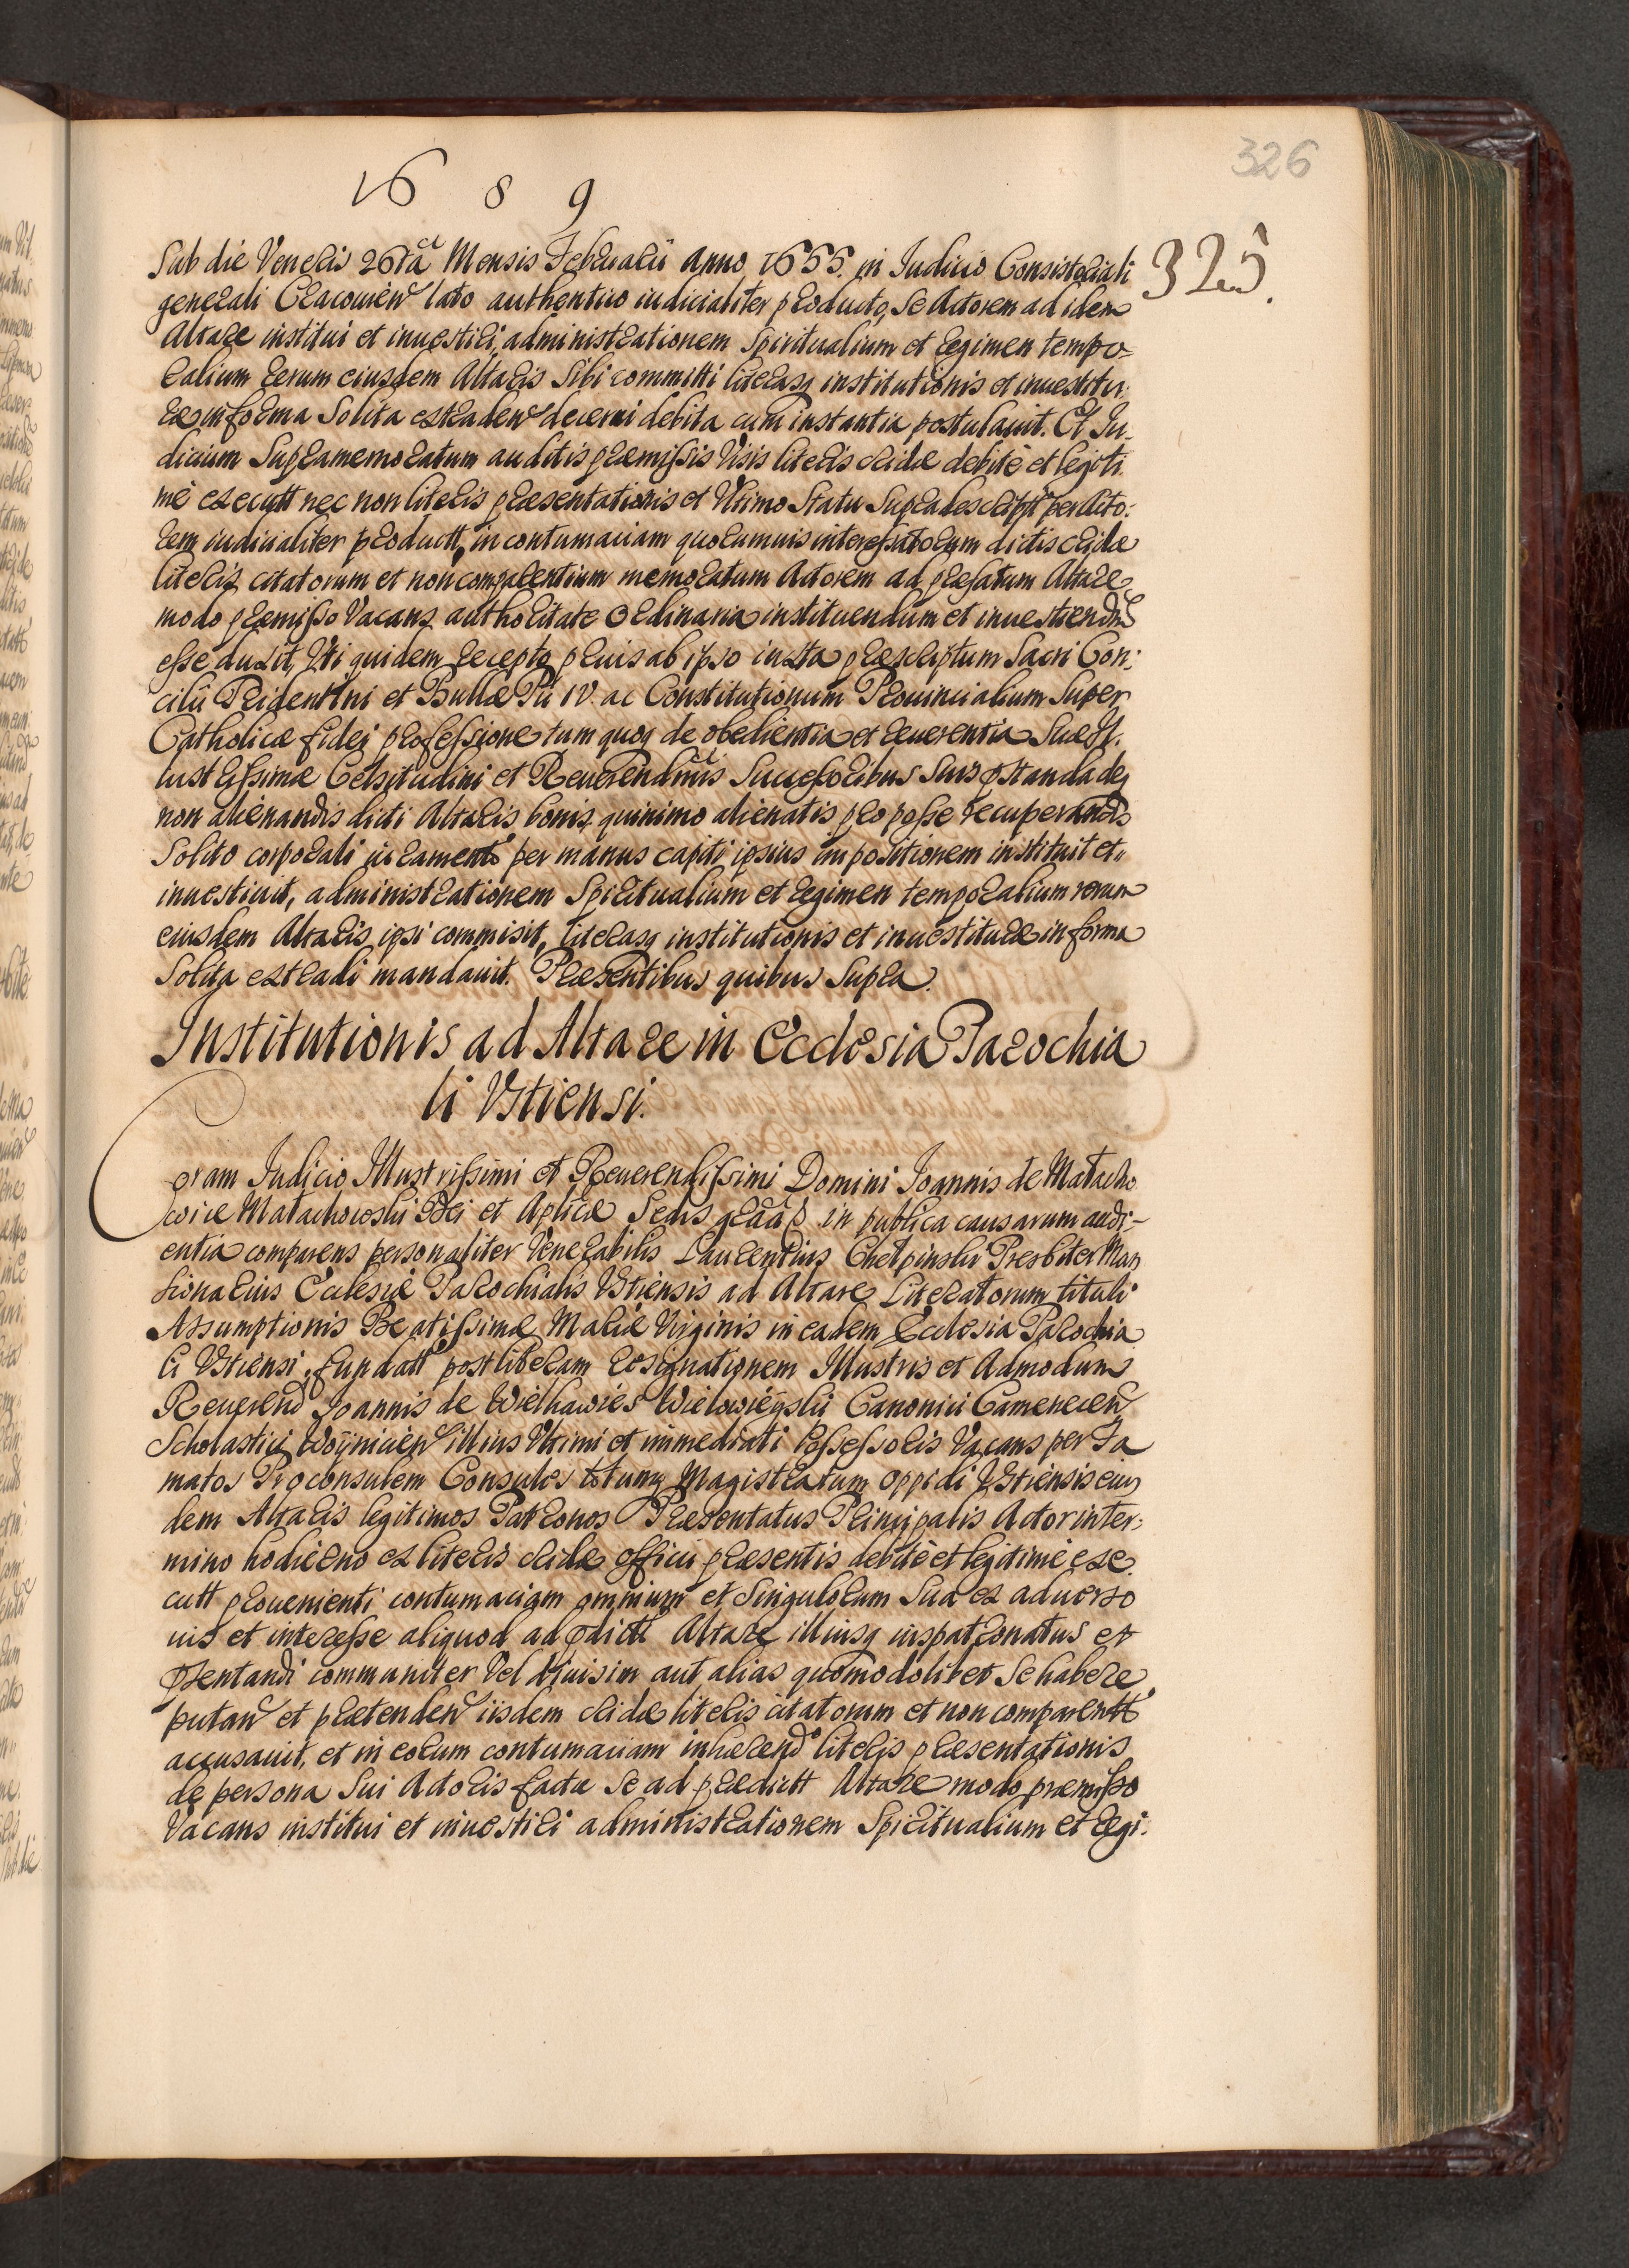 326
1689
325.
Sub die Veneris 26ta Mensis Februarii Anno 1655. in Judicio Consistoriali
generali Cracovien lato authentico iudicialiter producto, se Actorem ad idem
Altare institui et inuestiri, administrationem Spiritualium et regimen tempo-
ralium rerum eiusdem Altaris Sibi committi literasq institutionis et inuestitu-
ræ in forma Solita extraden decerni debita cum instantia postulauit. Et Ju-
dicium Supramemoratum auditis præmissis Visis literis cridæ debitè et legiti-
mè executt nec non literis præsentationis et Vltimo Statu Supradescriptt per Acto-
rem iudicialiter productt, in contumaciam quorumuis interessatorum dictis cridæ
literis citatorum et non comparentium memoratum Actorem ad præfatum Altare
modo præmisso Vacans authoritate Ordinaria instituendum et inuestiendum
esse duxit, Vti quidem recepto prius ab ipso iuxta præscriptum Sacri Con-
cilii Tridentini et Bullæ Pii IV. ac Constitutionum Prouincialium Super
Catholicæ fidei professione tum quoq de obedientia et reuerentia Suæ Il-
lustrissimæ Celsitudini et Reuerendmis Successoribus Suis pstanda deq
non alienandis dicti Altaris bonis, quinimo alienatis pro posse recuperandis
Solito corporali iuramento per manus capiti ipsius impositionem instituit et
inuestiuit, administrationem Spiritualium et regimen temporalium rerum
eiusdem Altaris ipsi commisit, literasq institutionis et inuestituræ in forma
Solita extradi mandauit. Præsentibus quibus Supra.
Institutionis ad Altare in Ecclesia Parochia
li Vstiensi.
Coram Judicio Illustrissimi et Reuerendissimi Domini Joannis de Małacho
wice Małachowski Dei et Aplicæ Sedis graa in publica causarum audi-
entia comparens personaliter Venerabilis Laurentius Chełpinski Presbiter Man
sionarius Ecclesiæ Parochialis Vstiensis ad Altare Literatorum tituli
Assumptionis Beatissimæ Mariæ Virginis in eadem Ecclesia Parochia
li Vstiensi, fundatt post liberam resignationem Illustris et Admodum
Reuerend Joannis de Wielkawies Wielowieÿski Canonici Camenecen
Scholastici Woÿnicien illius Vltimi et immediati Possessoris Vacans per Fa
matos Proconsulem Consules totumq Magistratum Oppidi Vstiensis eius
dem Altaris legitimos Patronos Præsentatus Principalis Actor in ter-
mino hodierno ex literis cridæ officii præsentis debitè et legitimè exe-
cutt prouenienti contumaciam omnium et Singulorum Sua ex aduerso
ius et interesse aliquod ad pdictt Altare illiusq iuspatronatus et
psentandi communiter Vel diuisim aut alias quomodolibet Se habere
putan et prætenden iisdem cridæ literis citatorum et non comparentt
accusauit, et in eorum contumaciam inhærend literis præsentationis
de persona Sui Actoris factæ Se ad prædictt Altare modo præmisso
Vacans institui et inuestiri administrationem Spiritualium et regi-